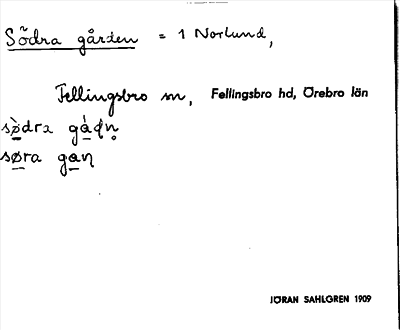 Södra gården = 1 Norlund,
Fellingsbro sn, Fellingsbro hd, Örebro län
sø̀dra gå̀ɖn̥
søra gaɳ
JÖRAN SAHLGREN 1909